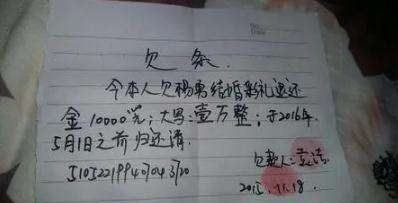 欠条
今本人欠杨勇结婚彩礼退还
金10000元；大写：壹万整；于2016年
5月1日之前归还清
欠款人：
2015.11.18.